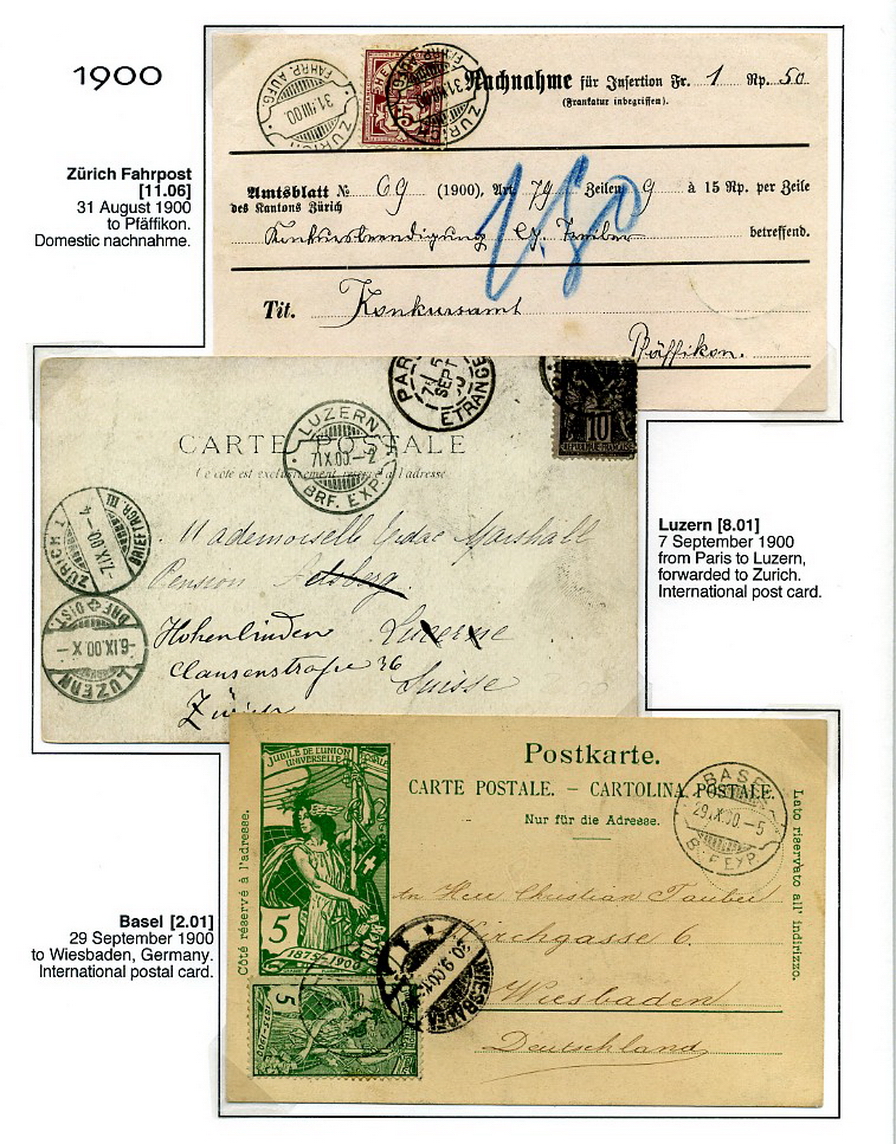 1900
Zürich Fahrpost
[11.06]
31 August 1900
to Pfäffikon.
Domestic nachnahme.
FAHRP. AUFG.
31.VIII.00.
ZÜRICH
15
Nachnahme für Insertion Fr. 1 Rp. 50
(Frankatur inbegriffen).
Amtsblatt No 69 (1900), Art. 79 Zeilen 9 à 15 Rp. per Zeile
des Kantons Zürich
betreffend.
1.50
Tit. Konkursamt
Pfäffikon.
PARIS
SEPT
ETRANGER
10
REPUBLIQUE FRANÇAISE
LUZERN
7.IX.00.–2
BRF. EXP.
CARTE POSTALE
Ce côté est exclusivement réservé à l'adresse
ZÜRICH 1
-7.IX.00.–4
BRIEFTRGR. III
Mademoiselle Marshall
Pension
BRF DIST.
-6.IX.00.X–
LUZERN
Hohenlinden Lucerne
Clausenstraße 36
Suisse
Zürich
Luzern [8.01]
7 September 1900
from Paris to Luzern,
forwarded to Zurich.
International post card.
JUBILÉ DE L'UNION
UNIVERSELLE POSTALE
5
1875–1900
Côté réservé à l'adresse.
Postkarte.
CARTE POSTALE. – CARTOLINA POSTALE.
Nur für die Adresse.
BASEL
29.IX.00.–5
BRF. EXP.
Lato riservato all' indirizzo.
An Herr Christian Tauber
Kirchgasse 6.
Wiesbaden
Deutschland
WIESBADEN
5
1875–1900
Basel [2.01]
29 September 1900
to Wiesbaden, Germany.
International postal card.